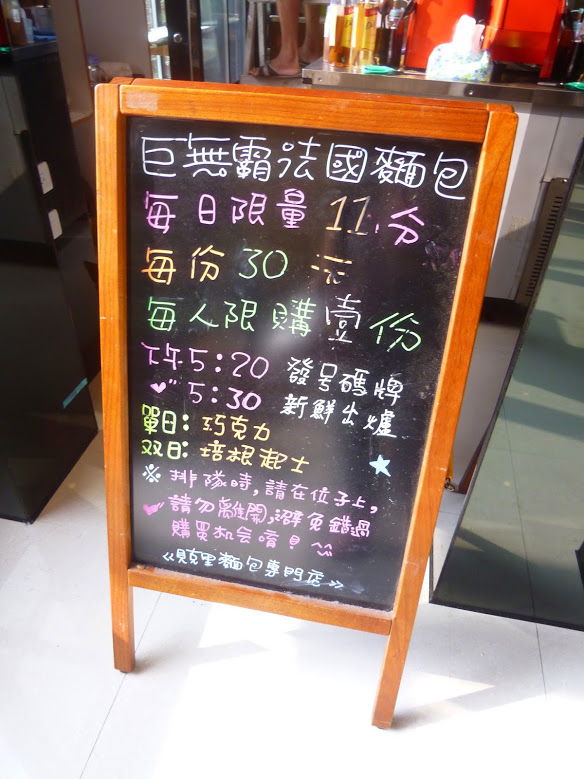 巨無霸法國麵包
每日限量11分
每份30元
每人限購壹份
下午5:20 發号碼牌
5:30 新鮮出爐
單日: 巧克力
双日: 培根起士
※ 排隊時,請在位子上,
請勿離開,避免錯過
購買机会唷!
《貝克里麵包專門店》